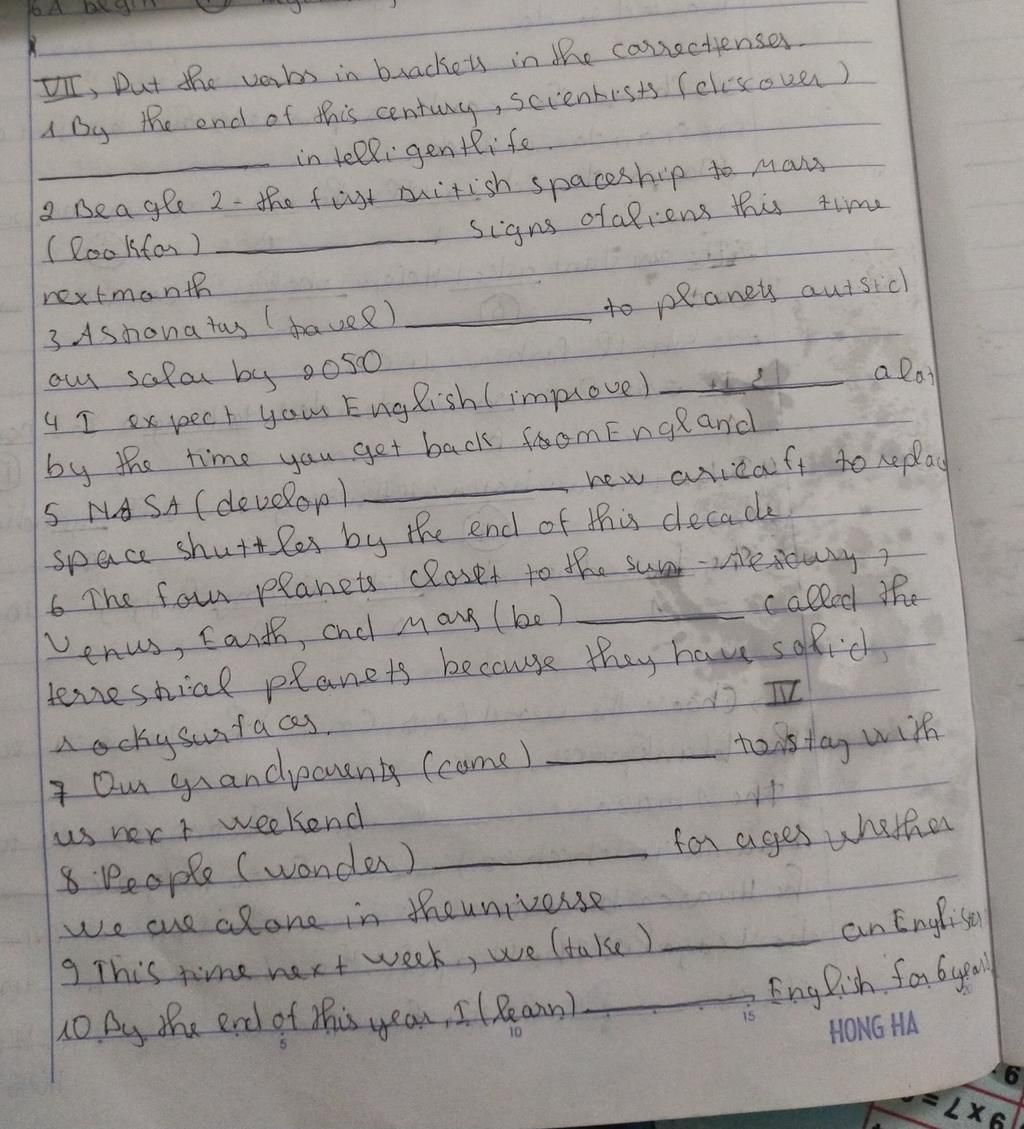 6A begin
VII, Put the verbs in brackets in the correct tenses.
1 By the end of this century, scientists (discover)
__________ intelligent life.
2 Beagle 2 - the first British spaceship to Mars
(look for) __________ signs of aliens this time
next month
3 (travel) __________ to planets outsid
our solar by 2050
4 I expect your English (improve) __________ alot
by the time you get back from England
5 NASA (develop) __________ new to replac
space shuttles by the end of this decade
6 The four planets closet to the sun - Mercury,
Venus, Earth, and Mars (be) __________ called the
terrestrial planets because they have solid,
rocky surfaces.
IV
7 Our grandparents (come) __________ to stay with
us next weekend
8 People (wonder) __________ for ages whether
We are alone in the universe
9 This time next week, we (take) __________ an English
10 By the end of this year, I (learn) __________ English for 6 years
5 10 15 20
HONG HA
9 x 7 =